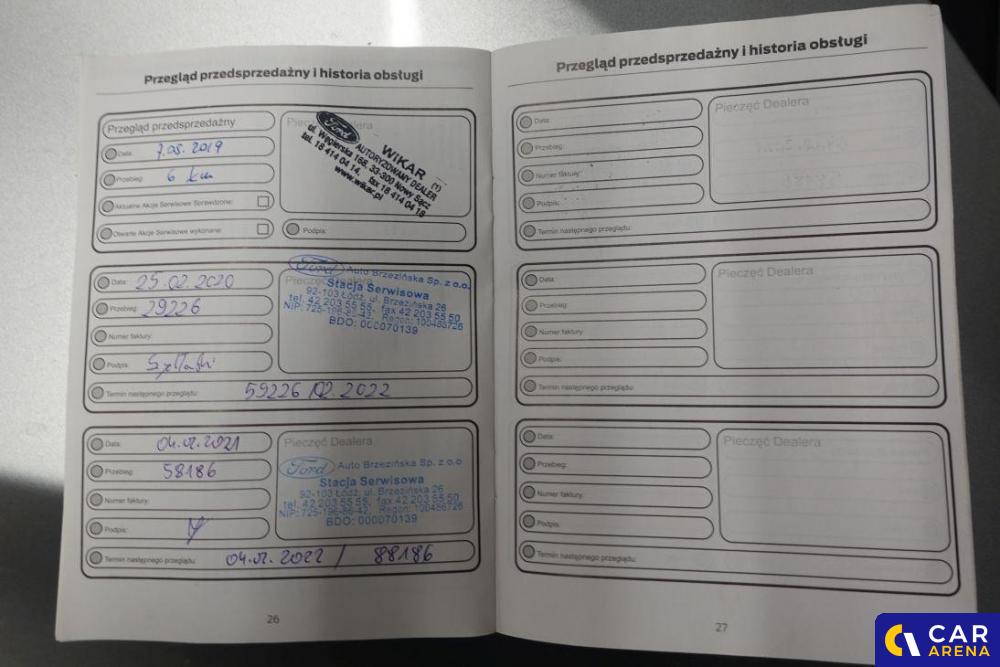 Przegląd przedsprzedażny i historia obsługi
Przegląd przedsprzedażny
Data: 7.05.2019
Przebieg: 6 km
Aktualne Akcje Serwisowe Sprawdzone:
Otwarte Akcje Serwisowe wykonane:
Pieczęć Dealera
Ford
WIKAR
AUTORYZOWANY DEALER
ul. Węgierska 168, 33-300 Nowy Sącz
tel. 18 414 04 14, fax 18 414 04 18
www.wikar.pl
(1)
Podpis:
Data: 25.02.2020
Przebieg: 29226
Numer faktury:
Podpis:
Pieczęć Dealera
Ford Auto Brzezińska Sp. z o.o.
Stacja Serwisowa
92-103 Łódź, ul. Brzezińska 26
tel. 42 203 55 55, fax 42 203 55 50
NIP: 725-196-86-42, Regon: 100486726
BDO: 000070139
Termin następnego przeglądu: 59226 / 02.2022
Data: 04.02.2021
Przebieg: 58186
Numer faktury:
Podpis:
Pieczęć Dealera
Ford Auto Brzezińska Sp. z o.o
Stacja Serwisowa
92-103 Łódź, ul. Brzezińska 26
tel. 42 203 55 55, fax 42 203 55 50
NIP: 725-196-86-42, Regon: 100486726
BDO: 000070139
Termin następnego przeglądu: 04.02.2022 / 88186
26
Przegląd przedsprzedażny i historia obsługi
Data:
Przebieg:
Numer faktury:
Podpis:
Pieczęć Dealera
Termin następnego przeglądu:
Data:
Przebieg:
Numer faktury:
Podpis:
Pieczęć Dealera
Termin następnego przeglądu:
Data:
Przebieg:
Numer faktury:
Podpis:
Pieczęć Dealera
Termin następnego przeglądu:
27
CAR
ARENA